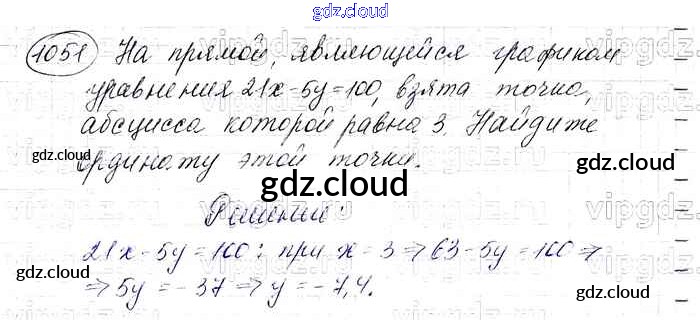 gdz.cloud
1051 На прямой, являющейся графиком
уравнения 21x-5y=100, взята точка,
абсцисса которой равна 3. Найдите
ординату этой точки.
gdz.cloud
gdz.cloud
gdz.cloud
Решение:
21x-5y=100: при x=3⇒63-5y=100⇒
⇒5y=-37⇒y=-7,4.
gdz.cloud
gdz.cloud